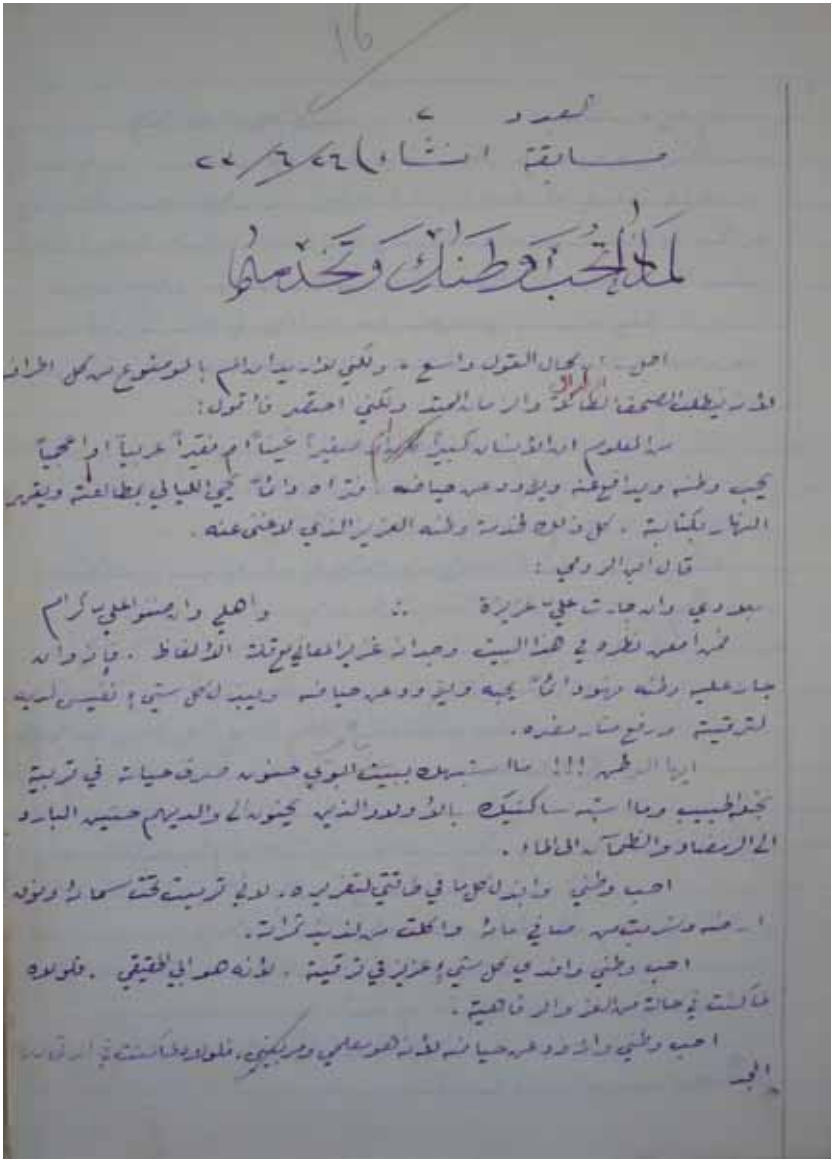 16
العدد ٢
مسابقة انشاء) ٢٤/٦/٢٧
لماذا تحب وطنك وتخدمه
اجل: ان مجال القول واسع ولكني لا اريد ان الم بالموضوع من كل اطرافه
لأنه يتطلب الصحف الطوال والزمان المديد ولكني اختصر فأقول:
من المعلوم ان الأنسان كبيراً ام صغيراً غنياً ام فقيراً عربياً او اعجمياً
يحب وطنه ويدافع عنه ويذود عن حياضه. فتراه دائماً يحيي الليالي بمطالعته ويقهر
النهار بكتابة. كل ذلك لخدمة وطنه العزيز الذي لا غنى عنه.
قال ابن الرومي:
بلادي وان جارت عليّ عزيزة ∴ واهلي وان ضنوا علي كرام
فمن امعن نظره في هذا البيت وجد انه غزير المعاني مع قلة الألفاظ. فإنه وان
جار عليه وطنه فهو دائماً يحبه ويذود عن حياضه ويبذل كل شيء نفيس لديه
لترقيته ورفع منار مجده.
ايها الوطن!!! ما اشبهك ببيت ابوي حنون صرف حياته في تربية
نجله الحبيب وما اشبه ساكنيك بالأولاد الذين يحنون الى والديهم حنين البارد
الى الرمضاء والظمآن الى الماء.
احب وطني وابذل كل ما في طاقتي لتعزيزه. لاني تربيت تحت سمائه وفوق
ارضه وشربت من صافي مائه واكلت من لذيذ ثمراته.
احب وطني وافدي كل شيء عزيز في ترقيته. لأنه هو ابي الحقيقي. فلولاه
لما كنت في حالة من العز والرفاهية.
احب وطني واذود عن حياضه لأنه هو معلمي ومربيني. فلولاه لما كنت في
المجد